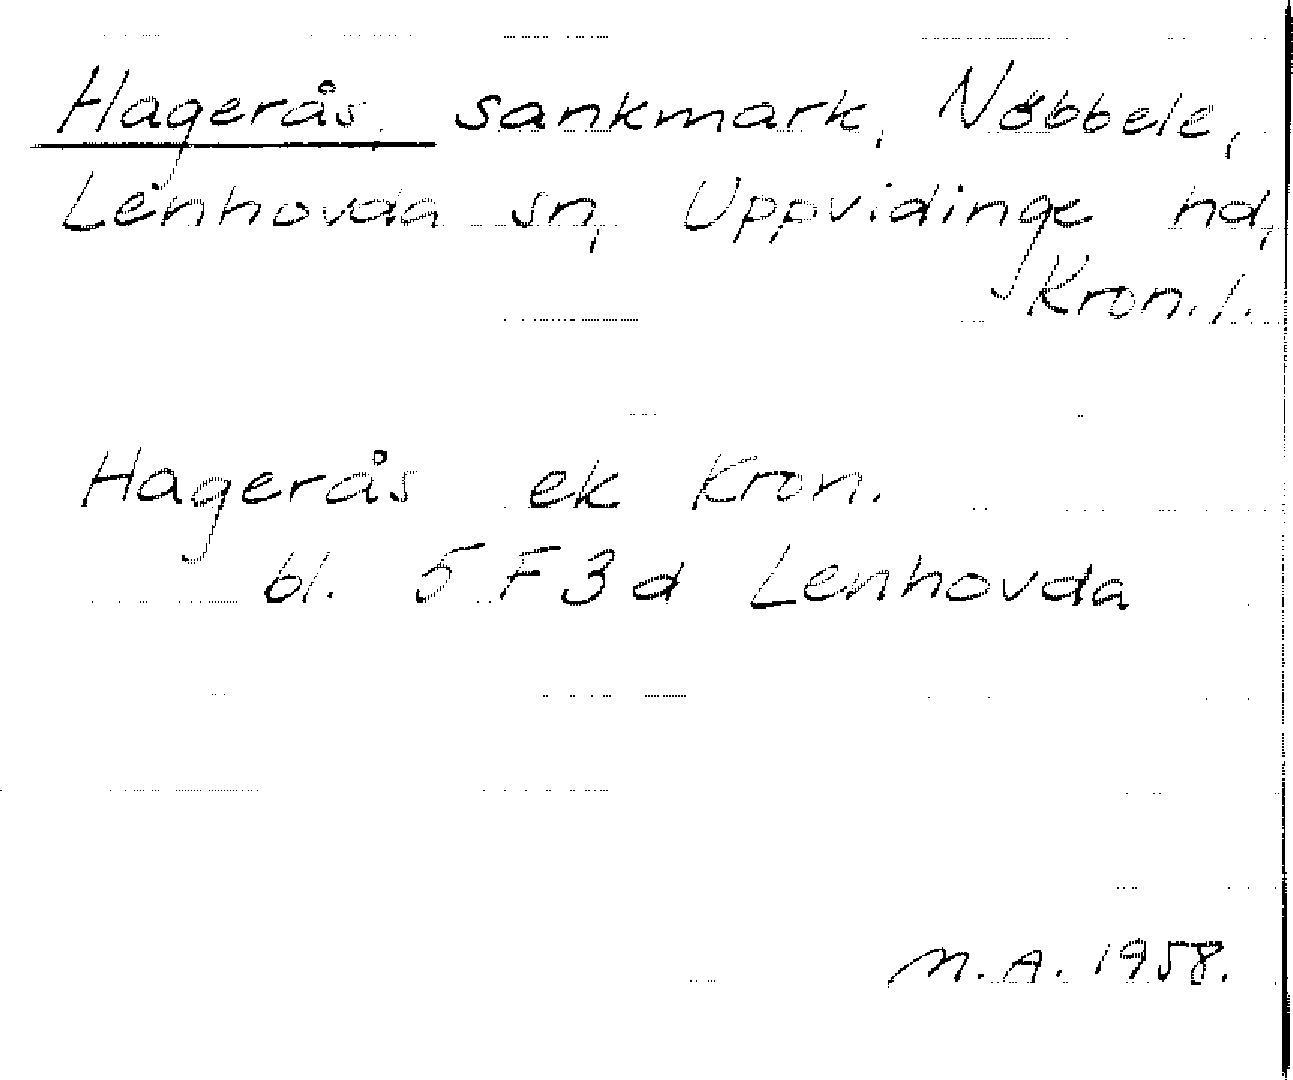 Hagerås, sankmark, Nöbbele,
Lenhovda sn, Uppvidinge hd,
Kron. l.
Hagerås ek Kron.
bl. 5 F 3 d Lenhovda
M. A. 1958.